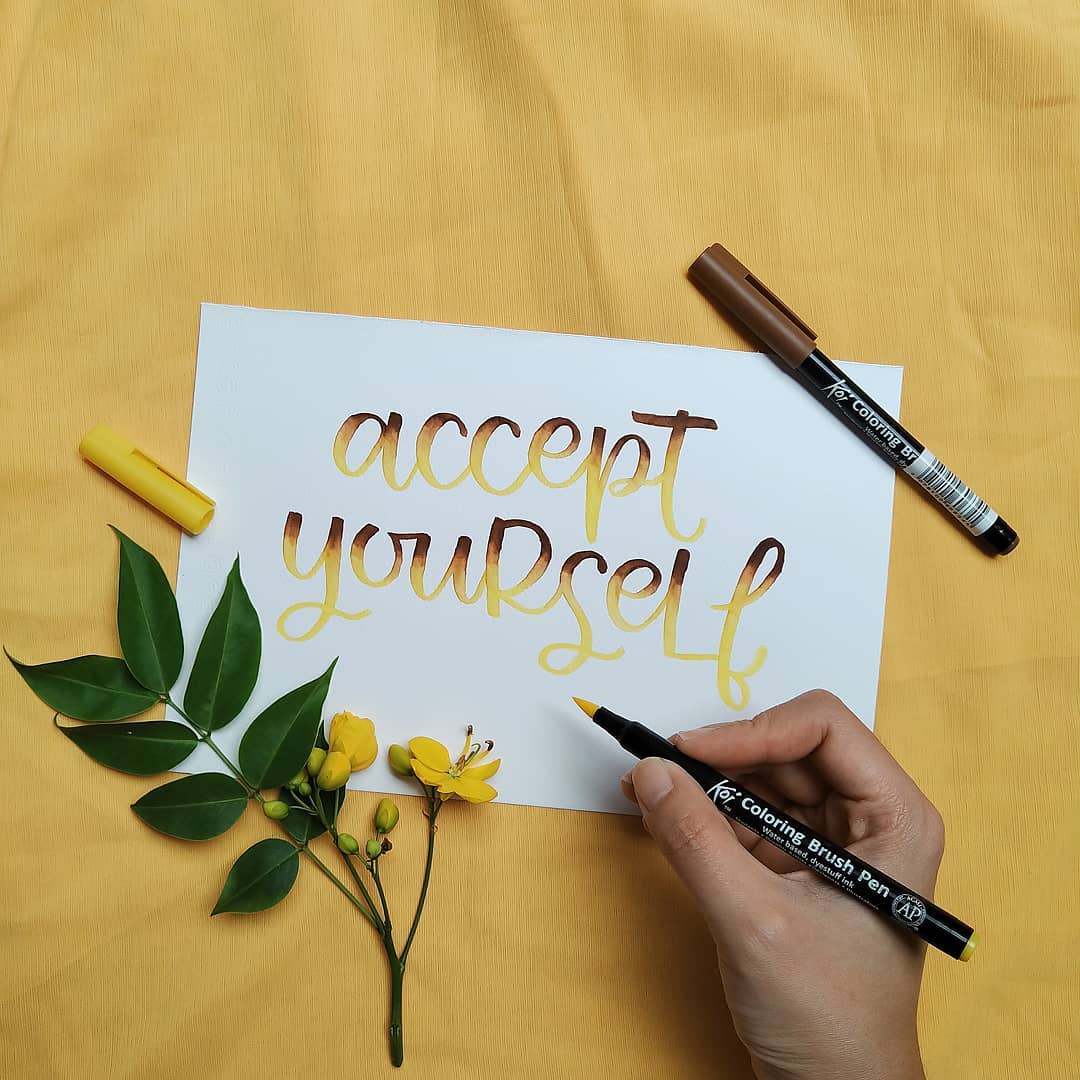 accept
yourself
Koi Coloring Br
Water based, dy
Koi Coloring Brush Pen
Water based, dyestuff ink
AP